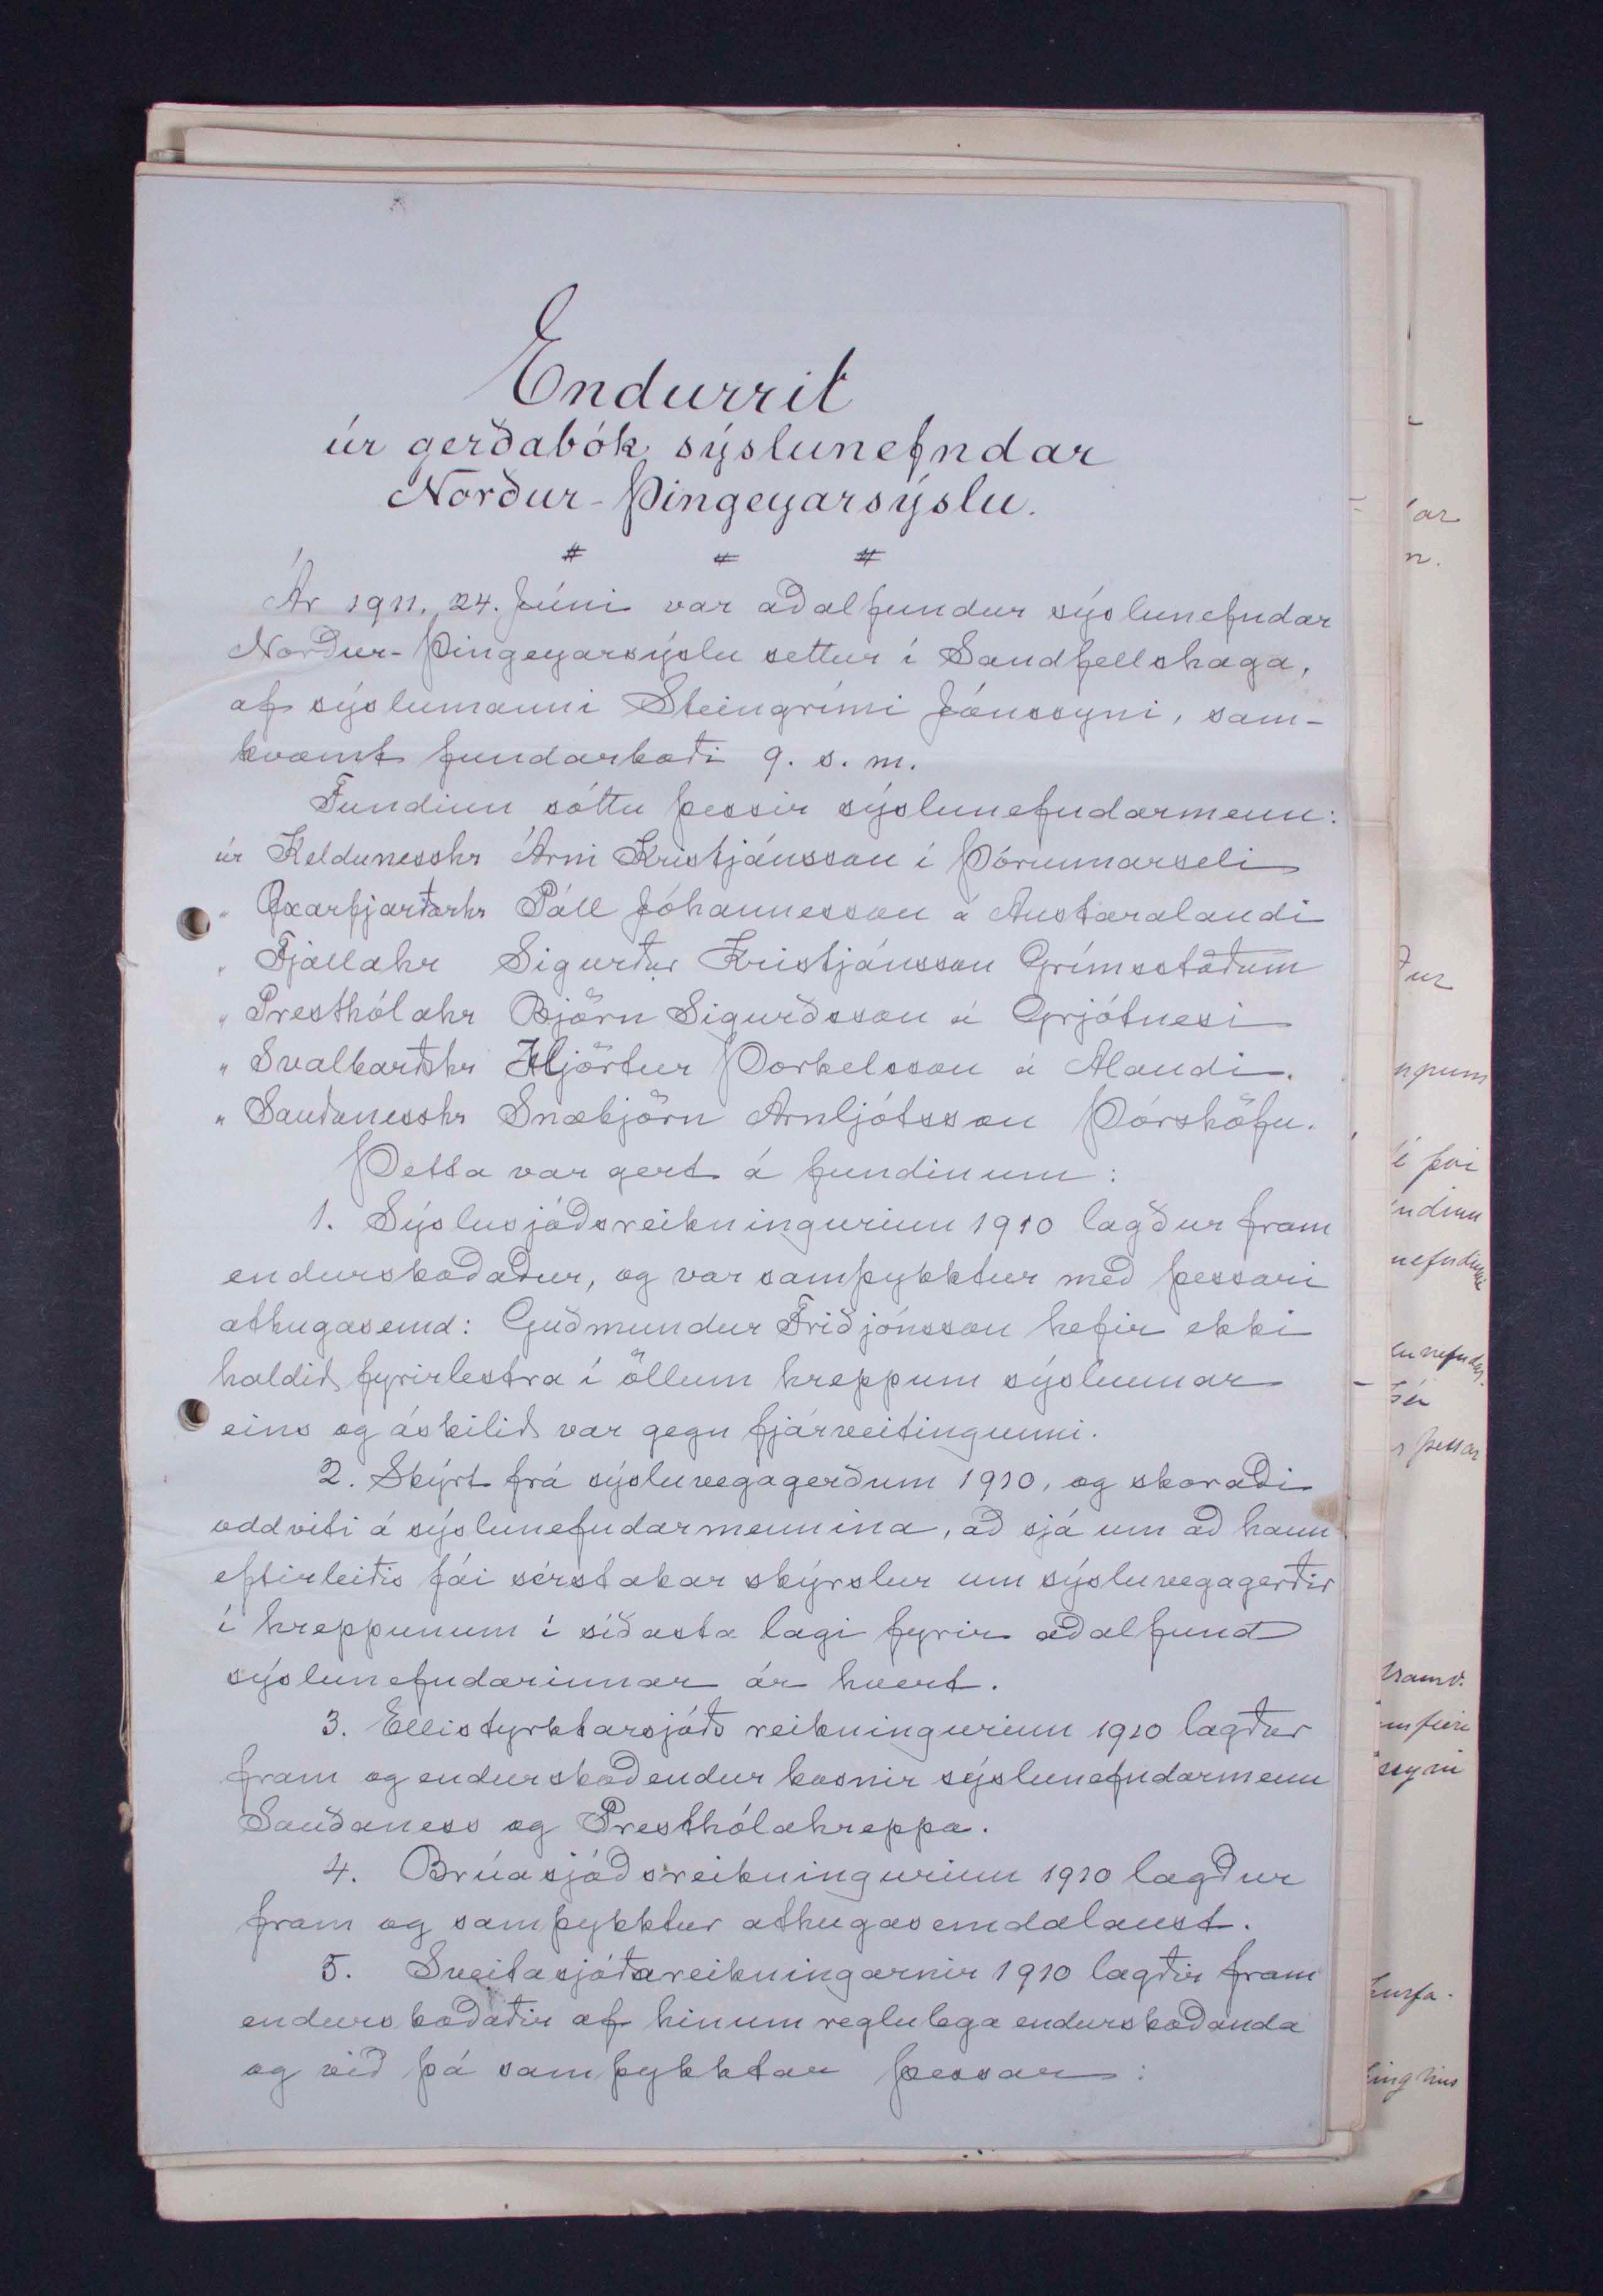 Endurrit
úr gerðabók sýslunefndar
Norður-Þingeyarsýslu.
# # #
Ár 1911, 24. Júni var aðalfundur sýslunefndar
Norður-Þingeyarsýslu settur í Sandfellshaga,
af sýslumanni Steingrími Jónssyni, sam-
kvæmt fundarboði 9. s. m.
Fundinn sóttu þessir sýslunefndarmenn:
úr Keldunesshr Árni Kristjánsson í Þórunnarseli
" Öxarfjarðarhr Páll Jóhannesson á Austaralandi
" Fjallahr Sigurður Kristjánsson Grímsstöðum
" Presthólahr Björn Sigurðsson á Grjótnesi
" Svalbarðshr Hjörtur Þorkelsson á Alandi.
" Sauðanesshr Snæbjörn Arnljótsson Þórshöfn.
Þetta var gert á fundinum:
1. Sýslusjóðsreikningurinn 1910 lagður fram
endurskoðaður, og var samþykktur með þessari
athugasemd: Guðmundur Friðjónsson hefir ekki
haldið fyrirlestra í öllum hreppum sýslunnar
eins og áskilið var gegn fjárveitingunni.
2. Skýrt frá sýsluvegagerðum 1910, og skoraði
oddviti á sýslunefndarmennina, að sjá um að hann
eftirleiðis fái sérstakar skýrslur um sýsluvegagerðir
í hreppunum í síðasta lagi fyrir aðalfund
sýslunefndarinnar ár hvert.
3. Ellistyrktarsjóðs reikningurinn 1910 lagður
fram og endurskoðendur kosnir sýslunefndarmenn
Sauðaness og Presthólahreppa.
4. Brúasjóðsreikningurinn 1910 lagður
fram og samþykktur athugasemdalaust.
5. Sveitasjóðareikningarnir 1910 lagðir fram
endurskoðaðir af hinum reglulega endurskoðanda
og við þá samþykktar þessar: